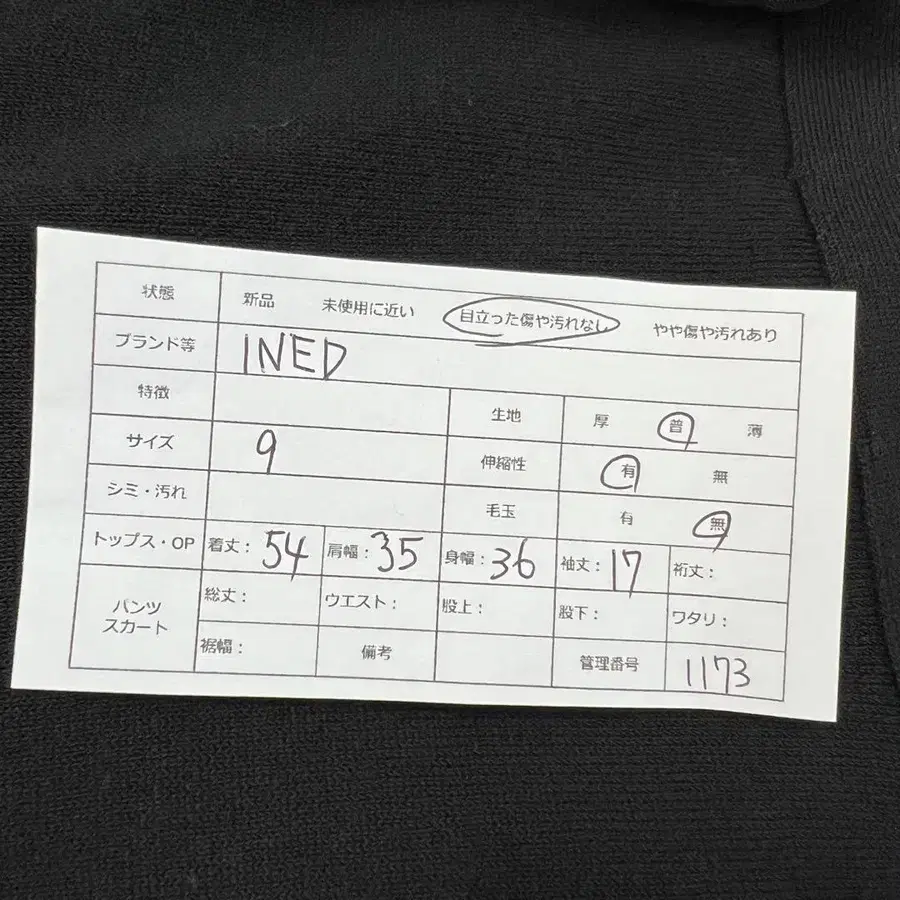 状態 新品 未使用に近い 目立った傷や汚れなし やや傷や汚れあり
ブランド等 INED
特徴 生地 厚 普 薄
サイズ 9 伸縮性 有 無
シミ・汚れ 毛玉 有 無
トップス・OP 着丈: 54 肩幅: 35 身幅: 36 袖丈: 17 裄丈:
パンツ スカート 総丈: ウエスト: 股上: 股下: ワタリ:
裾幅: 備考 管理番号 1173